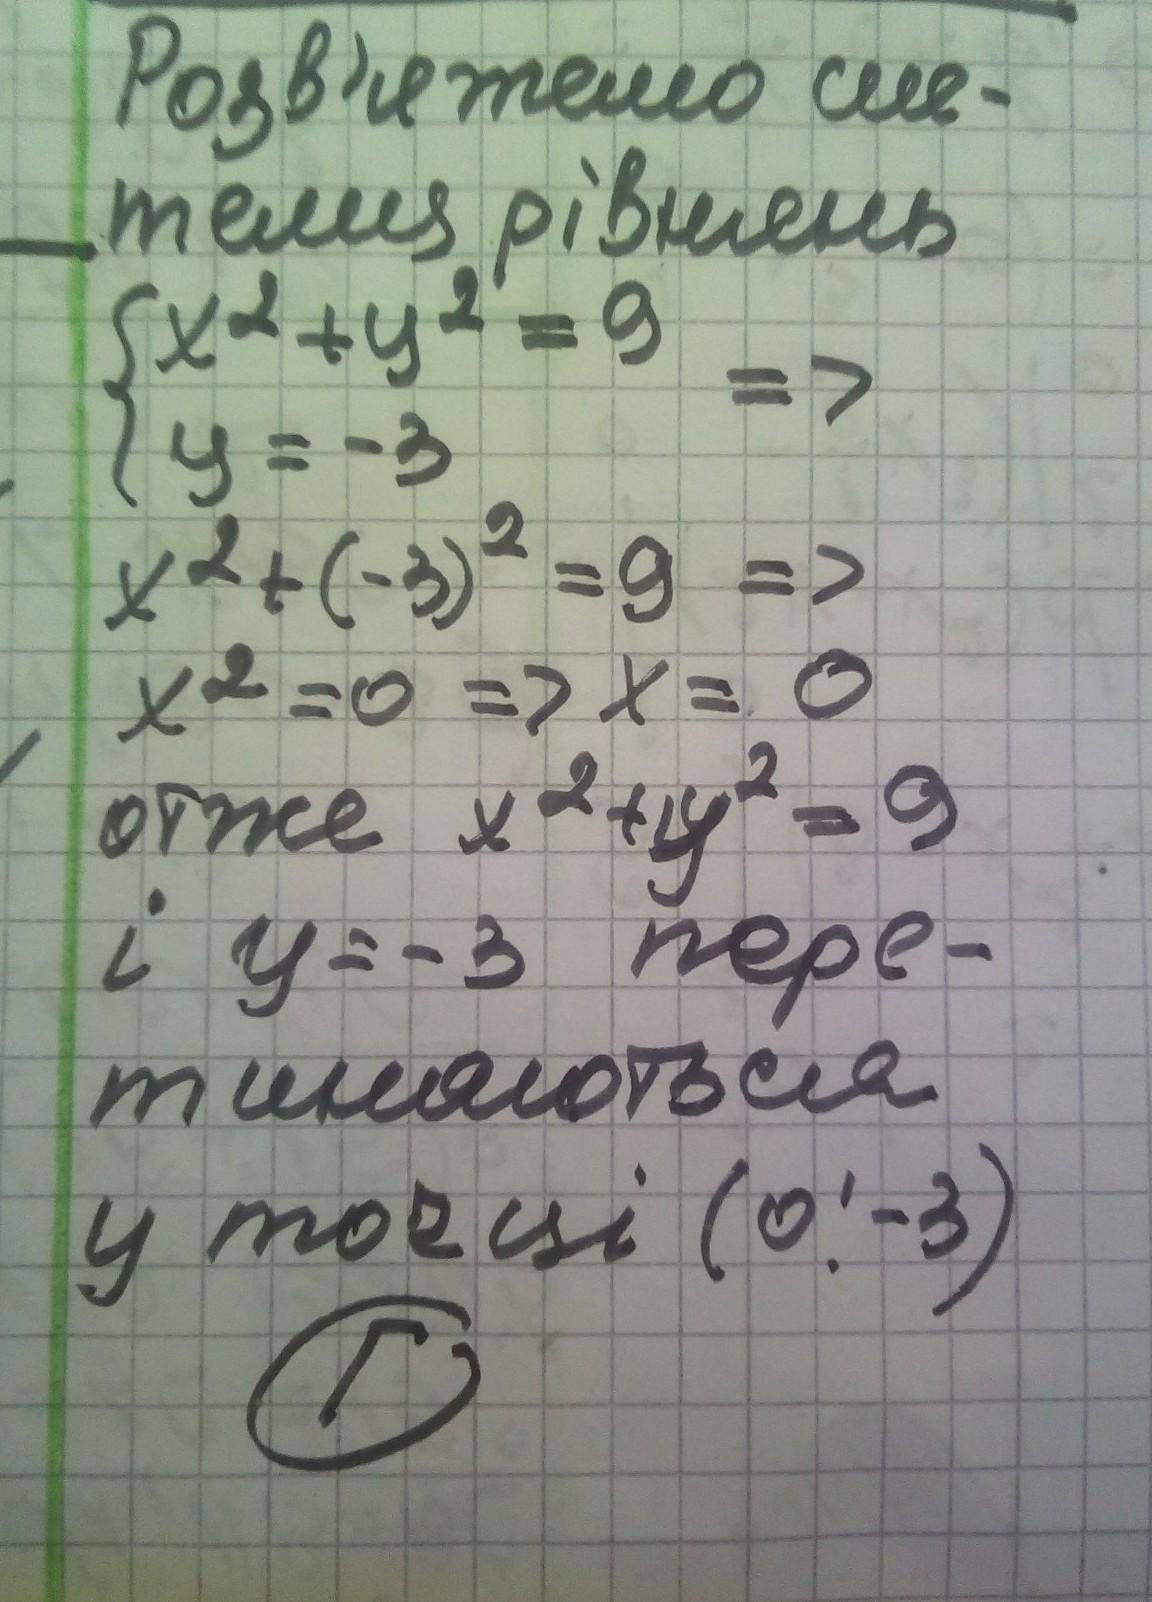 Розв'яжемо сис-
тему рівнянь
{x² + y² = 9
=>
{y = -3
x² + (-3)² = 9 =>
x² = 0 => x = 0
отже x² + y² = 9
і y = -3 пере-
тинаються
у точці (0; -3)
Г